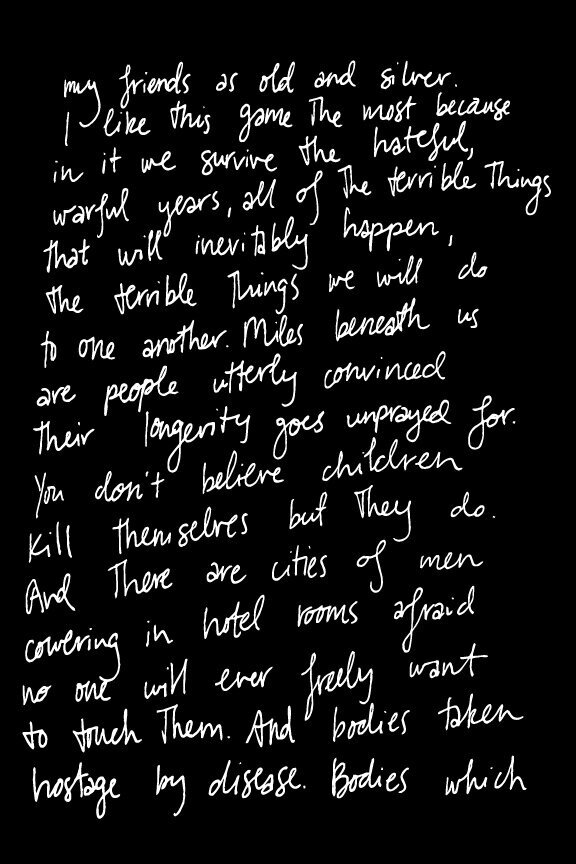 my friends as old and silver.
I like this game the most because
in it we survive the hateful,
warful years, all of the terrible things
that will inevitably happen,
the terrible things we will do
to one another. Miles beneath us
are people utterly convinced
their longevity goes unprayed for.
You don't believe children
kill themselves but they do.
And there are cities of men
cowering in hotel rooms afraid
no one will ever freely want
to touch them. And bodies taken
hostage by disease. Bodies which